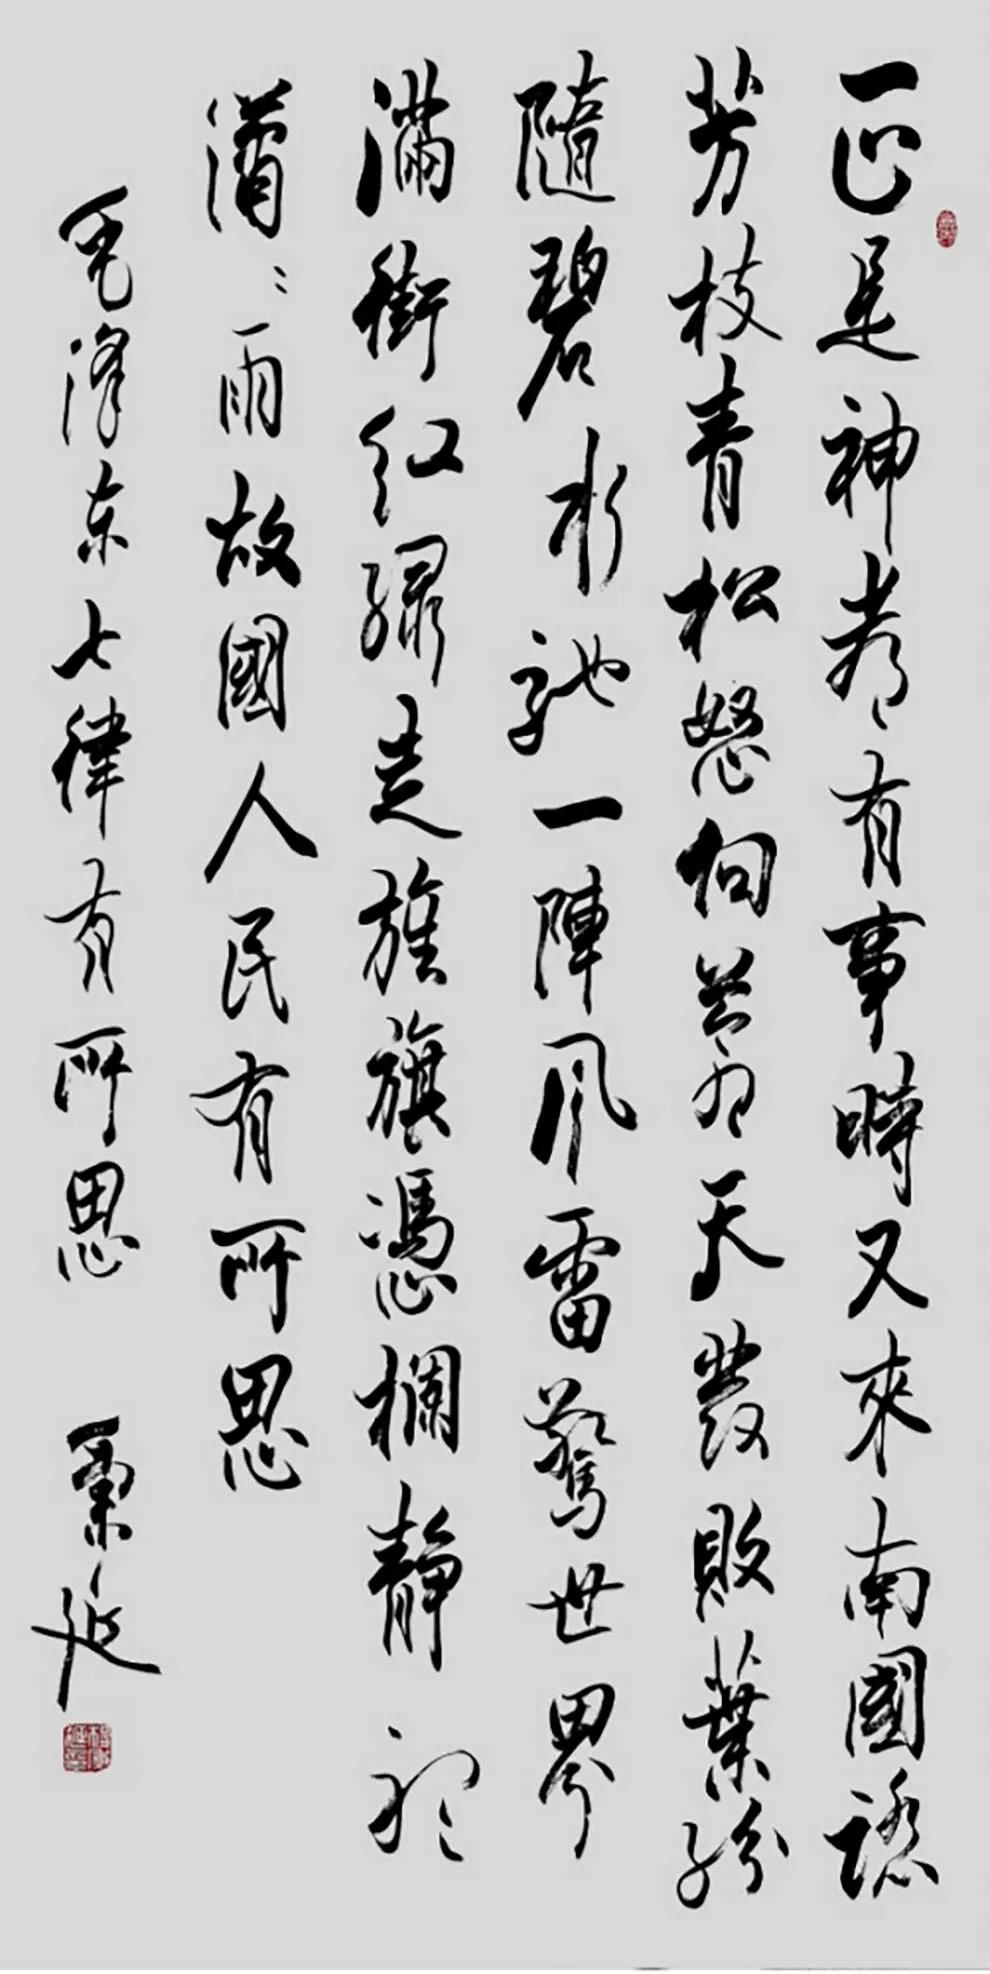 正是神都有事時又來南國踏
芳枝青松怒向蒼天發敗葉紛
隨碧水馳一陣風雷驚世界
滿街紅綠走旌旗憑欄靜聽
瀟〻雨故國人民有所思
毛澤東七律有所思 延